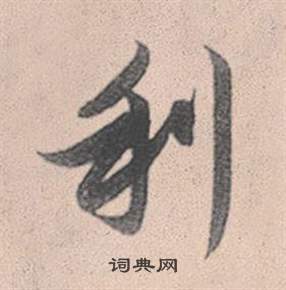 利
词典网